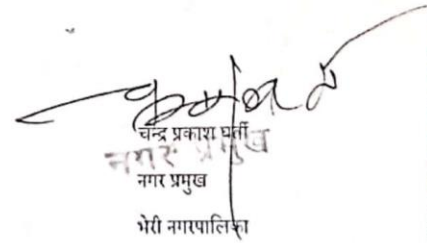 चन्द्र प्रकाश घर्ती
नगर प्रमुख
नगर प्रमुख
भेरी नगरपालिका